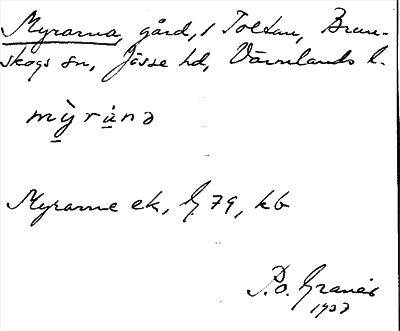 Myrarna, gård, i Toltan, Brun-
skogs sn, Jösse hd, Värmlands l.
mỳ̠rạ̀̈nə
Myrarne ek, G 79, kb
P.O. Granér
1937